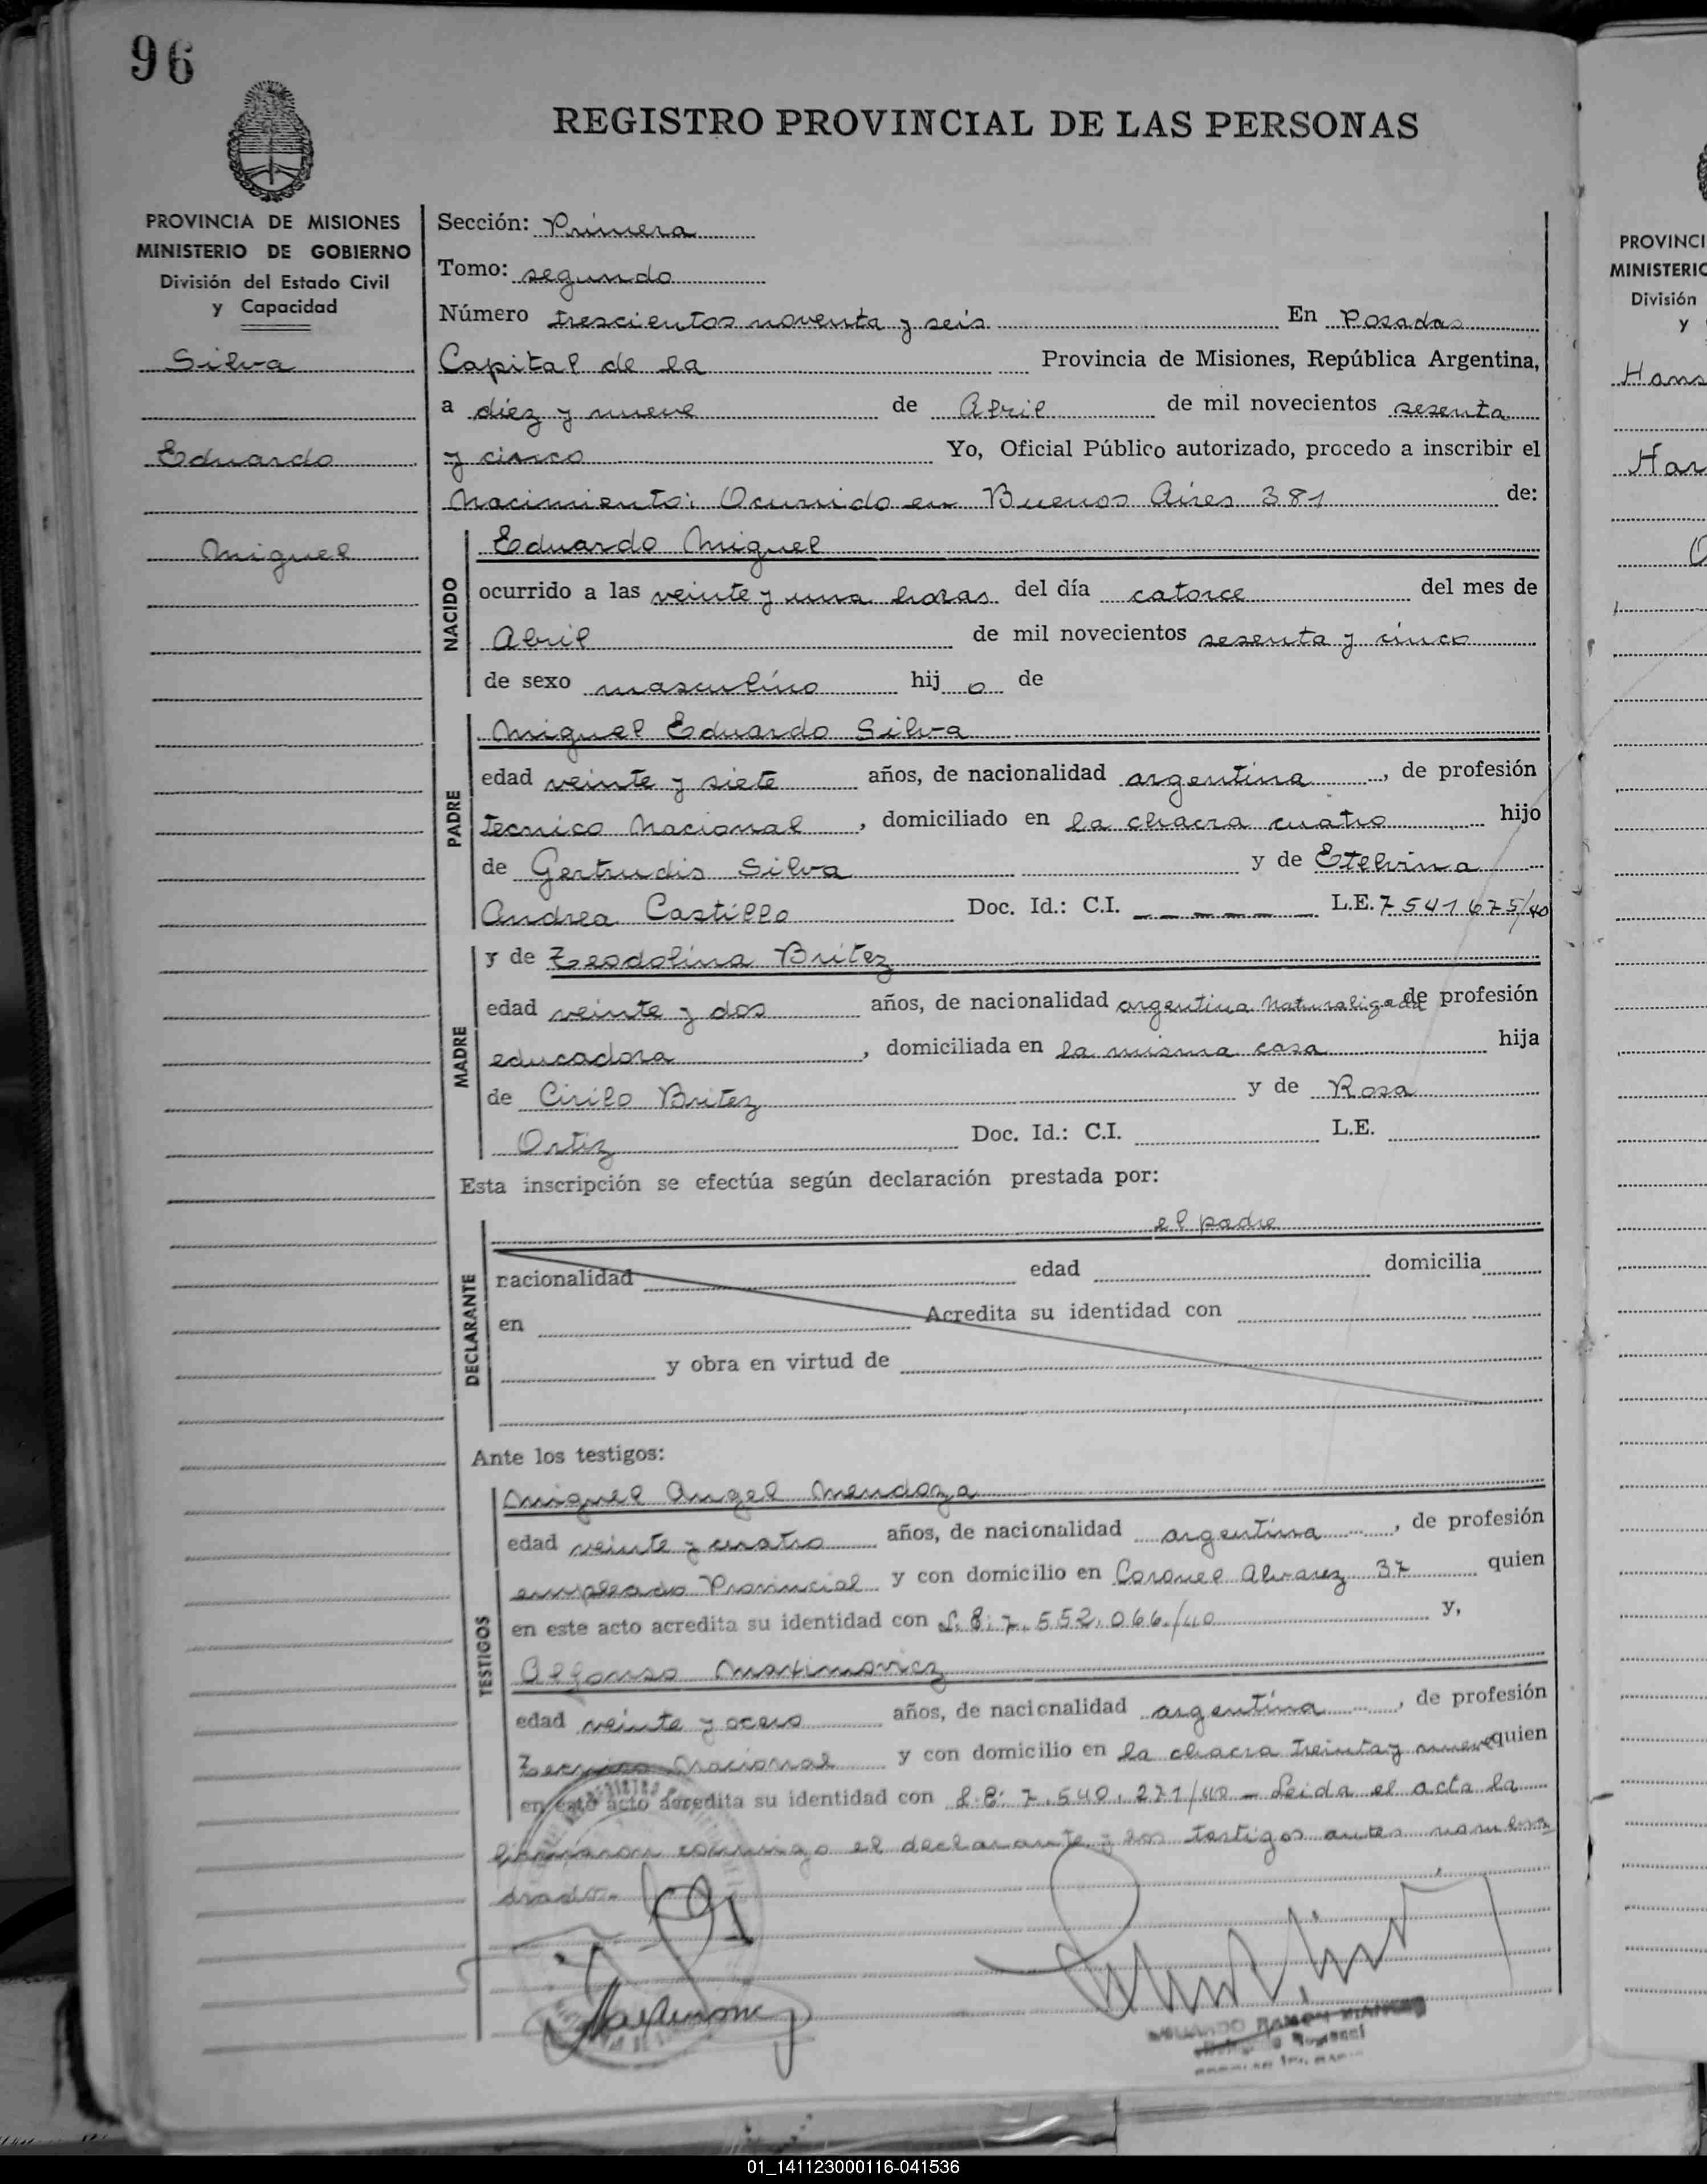 96
REGISTRO PROVINCIAL DE LAS PERSONAS
PROVINCIA DE MISIONES
MINISTERIO DE GOBIERNO
División del Estado Civil
y Capacidad
Silva
Eduardo
Miguel
Sección: Primera
Tomo: segundo
Número trescientos noventa y seis En Posadas
Capital de la Provincia de Misiones, República Argentina,
a diez y nueve de Abril de mil novecientos sesenta
y cinco Yo, Oficial Público autorizado, procedo a inscribir el
Nacimiento: Ocurrido en Buenos Aires 381 de:
NACIDO
Eduardo Miguel
ocurrido a las veinte y una horas del día catorce del mes de
Abril de mil novecientos sesenta y cinco
de sexo masculino hij o de
PADRE
Miguel Eduardo Silva
edad veinte y siete años, de nacionalidad argentina, de profesión
tecnico Nacional, domiciliado en la chacra cuatro hijo
de Gertrudis Silva y de Etelvina
Andrea Castillo Doc. Id.: C.I. – – – – – L.E. 7541675/40
MADRE
y de Teodolina Britez
edad veinte y dos años, de nacionalidad argentina Naturalizada de profesión
educadora, domiciliada en la misma casa hija
de Cirilo Britez y de Rosa
Ortiz Doc. Id.: C.I. L.E.
Esta inscripción se efectúa según declaración prestada por:
DECLARANTE
el padre
nacionalidad edad domicilia
en Acredita su identidad con
y obra en virtud de
Ante los testigos:
TESTIGOS
Miguel Angel Mendoza
edad veinte y cuatro años, de nacionalidad argentina, de profesión
empleado Provincial y con domicilio en Coronel Alvarez 37 quien
en este acto acredita su identidad con L.E: 7.552.066./40 y,
Alfonso Maximovicz
edad veinte y ocho años, de nacionalidad argentina, de profesión
Tecnico Nacional y con domicilio en la chacra treinta y nueve quien
en este acto acredita su identidad con L.E: 7.540.271/40 – Leida el acta la
firmaron conmigo el declarante y los testigos antes nombra
drado.-
PROVINCI
MINISTERIO
División
y
Hans
Har
01_141123000116-041536